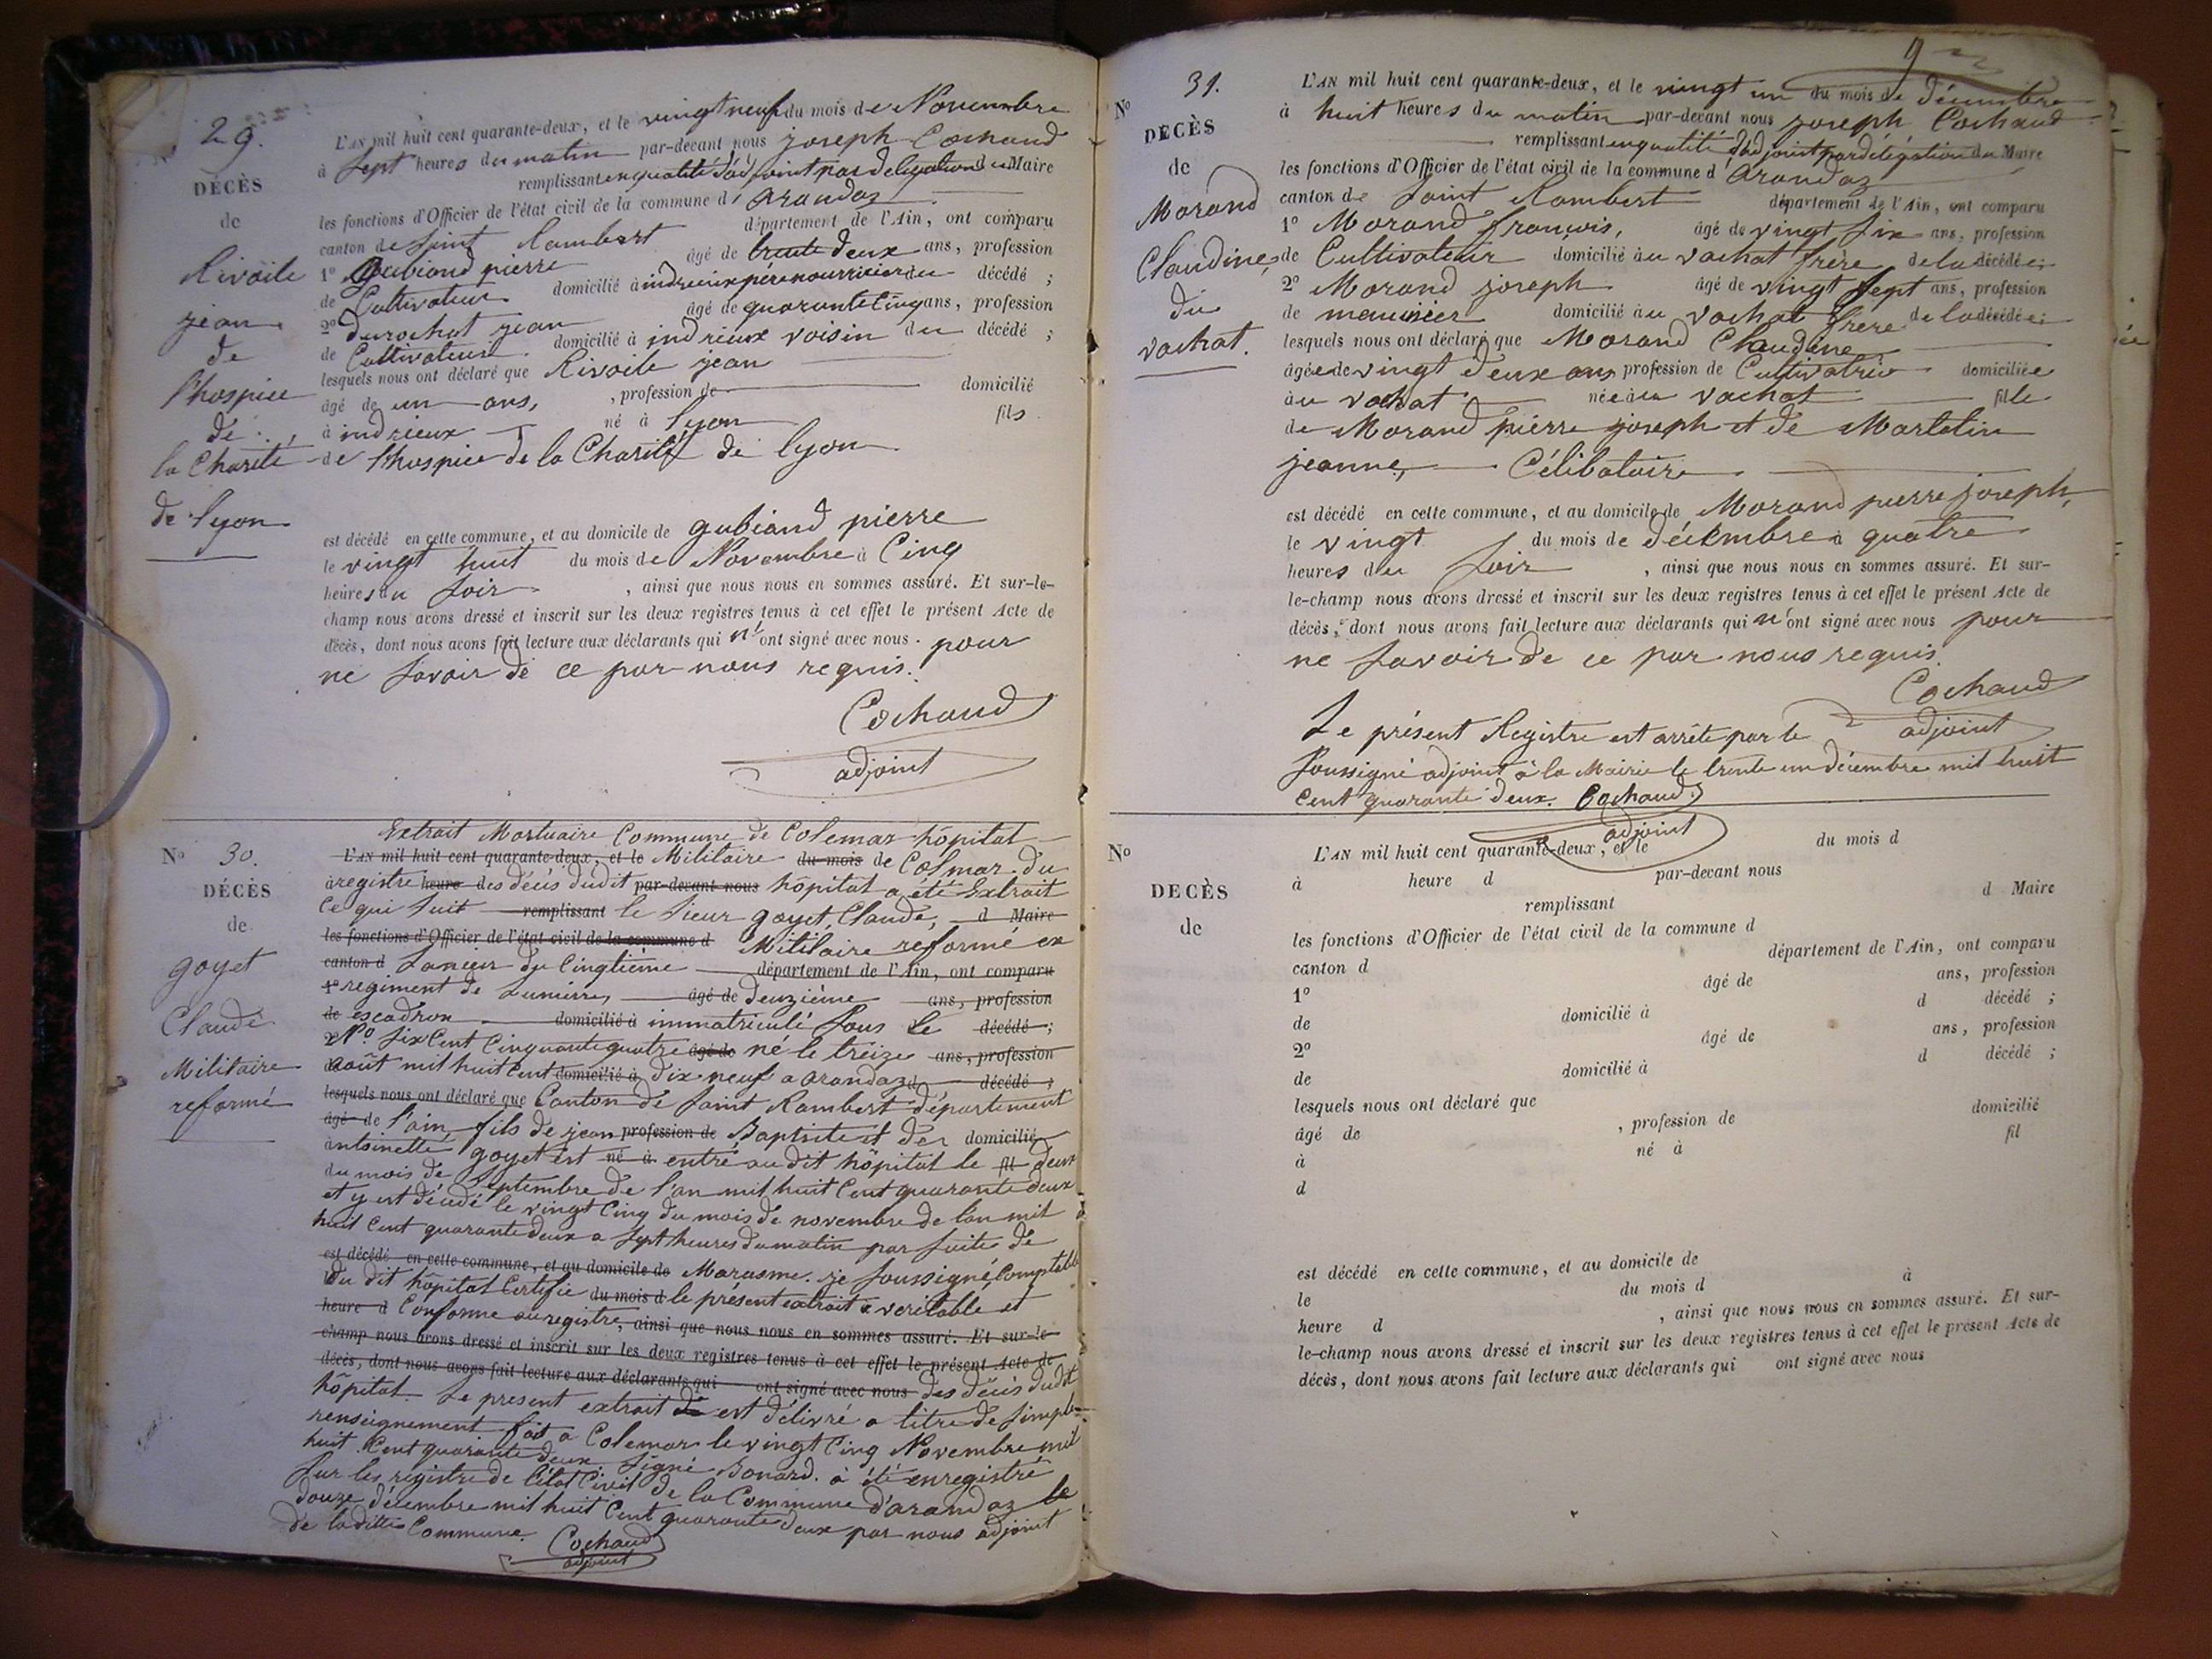 29.
DÉCÈS
de
Rivoile
jean
de
l'hospice
de
la Charité
de lyon
L'AN mil huit cent quarante-deux, et le vingt neuf du mois de Novembre
à sept heures du matin par-devant nous joseph Cochaud
remplissant en qualité d'adjoint par delegation du Maire
les fonctions d'Officier de l'état civil de la commune d'arandaz
canton de saint Rambert département de l'Ain, ont comparu
1º gubiand pierre âgé de trente deux ans, profession
de Cultivateur domicilié à indrieux père nourricier du décédé ;
2º durochat jean âgé de quarante cinq ans, profession
de Cultivateur domicilié à indrieux voisin du décédé ;
lesquels nous ont déclaré que Rivoile jean
âgé de un ans, , profession de domicilié
à indrieux né à lyon fils
de l'hospice de la Charité de lyon
est décédé en cette commune, et au domicile de gubiand pierre
le vingt huit du mois de Novembre à Cinq
heures du soir , ainsi que nous nous en sommes assuré. Et sur-le-
champ nous avons dressé et inscrit sur les deux registres tenus à cet effet le présent Acte de
décès, dont nous avons fait lecture aux déclarants qui n'ont signé avec nous. pour
ne savoir de ce par nous requis.
Cochaud
adjoint
Nº 30.
DÉCÈS
de
goyet
Claude
Militaire
reformé
Extrait Mortuaire Commune de Colemar hôpital
L'AN mil huit cent quarante-deux, et le Militaire du mois de Colmar. du
à registre heure des décès dudit par-devant nous hôpital a été Extrait
Ce qui suit remplissant le sieur goyet, Claude, d Maire
les fonctions d'Officier de l'état civil de la commune d Militaire reformé ex
canton d Lancier du Cinqtieme département de l'Ain, ont comparu
1º regiment de Lanciers, âgé de deuzième ans, profession
de escadron domicilié à immatriculé sous le décédé ;
2º Nº six Cent Cinquante quatre âgé de né le treize ans, profession
août mil huit Cent domicilié à dix neuf a arandaz d décédé ;
lesquels nous ont déclaré que Canton de saint Rambert département
âgé de l'ain, fils de jean profession de Baptiste et de domicilié
antoinette goyet est né à entré au dit hôpital le fil deux
du mois de septembre de l'an mil huit Cent quarante deux
et y est décédé le vingt Cinq du mois de novembre de l'an mil
huit Cent quarante deux a sept heures du matin par suite de
est décédé en cette commune, et au domicile de Marasme. je soussigné, Comptable
du dit hôpital Certifie du mois d le présent extrait veritable et
heure d Conforme au registre, ainsi que nous nous en sommes assuré. Et sur-le
champ nous avons dressé et inscrit sur les deux registres tenus à cet effet le présent Acte de
décès, dont nous avons fait lecture aux déclarants qui ont signé avec nous des décès dudit
hôpital Le present extrait est délivré a titre de simple
renseignement fait a Colemar le vingt Cinq Novembre mil
huit Cent quarante deux signé Bonard. à été enregistré
sur les registre de l'état Civil de la Commune d'arandaz le
douze décembre mil huit Cent quarante deux par nous adjoint
de laditte Commune. Cochaud
adjoint
9
Nº 31.
DÉCÈS
de
Morand
Claudine,
du
vachat.
L'AN mil huit cent quarante-deux, et le vingt un du mois de décembre
à huit heures du matin par-devant nous joseph Cochaud
remplissant en qualité d'adjoint par délégation du Maire
les fonctions d'Officier de l'état civil de la commune d'arandaz
canton de saint Rambert département de l'Ain, ont comparu
1º Morand françois, âgé de vingt six ans, profession
de Cultivateur domicilié au vachat frère de la décédée ;
2º Morand joseph âgé de vingt sept ans, profession
de meunier domicilié au vachat frère de la décédée ;
lesquels nous ont déclaré que Morand Claudine
âgée de vingt deux ans profession de Cultivatrice domiciliée
au vachat née au vachat fille
de Morand pierre joseph et de Martelin
jeanne, Célibataire
est décédé en cette commune, et au domicile de Morand pierre joseph,
le vingt du mois de décembre à quatre
heures du soir , ainsi que nous nous en sommes assuré. Et sur-
le-champ nous avons dressé et inscrit sur les deux registres tenus à cet effet le présent Acte de
décès, dont nous avons fait lecture aux déclarants qui n'ont signé avec nous pour
ne savoir de ce par nous requis.
Cochaud
adjoint
Le présent Registre est arrêté par le
soussigné adjoint à la Mairie le trente un décembre mil huit
cent quarante deux. Cochaud
adjoint
Nº
DÉCÈS
de
L'AN mil huit cent quarante-deux, et le du mois d
à heure d par-devant nous
remplissant d Maire
les fonctions d'Officier de l'état civil de la commune d
canton d département de l'Ain, ont comparu
1º âgé de ans, profession
de domicilié à d décédé ;
2º âgé de ans, profession
de domicilié à d décédé ;
lesquels nous ont déclaré que
âgé de , profession de domicilié
à né à fil
d
est décédé en cette commune, et au domicile de
le du mois d à
heure d , ainsi que nous nous en sommes assuré. Et sur-
le-champ nous avons dressé et inscrit sur les deux registres tenus à cet effet le présent Acte de
décès, dont nous avons fait lecture aux déclarants qui ont signé avec nous